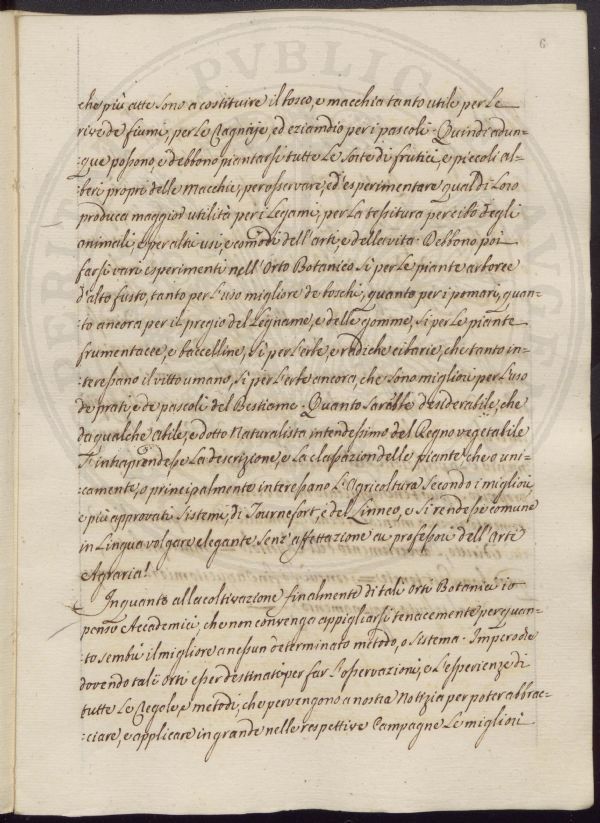 6
che più atte sono a costituire il bosco, e macchia tanto utile per le
rive de fiumi, per le Ragnaje, ed eziandio per i pascoli. Quindi adun=
=que possono, e debbono piantarsi tutte le sorte di frutici, e piccoli al=
=beri propri delle Macchie, per osservare, ed esperimentare qual di loro
produca maggior utilità per i Legami, per la tessitura per cibo degli
animali, e per altri usi, e comodi dell'arti, e della vita. Debbono poi
farsi vari esperimenti nell'Orto Botanico sì per le piante arboree
d'alto fusto, tanto per l'uso migliore de boschi, quanto per i pomarj, quan=
=to ancora per il pregio del Legname, e delle gomme, sì per le piante
frumentacee, e baccelline, sì per l'erbe, e radiche cibarie, che tanto in=
=teressano il vitto umano, sì per l'erbe ancora, che sono migliori per l'uso
de prati, e de pascoli del Bestiame. Quanto sarebbe desiderabile, che
da qualche abile, e dotto Naturalista intendessimo del Regno vegetabile
s'intraprendesse la descrizione, e la classazion delle piante, che o uni=
=camente, o principalmente interessano l'Agricoltura secondo i migliori,
e più approvati sistemi, di Tournefort, e del Linneo, e si rendesse comune
in Lingua volgare elegante senz'affettazione a professori dell'Arte
Agraria!
Inquanto alla coltivazione finalmente di tali orti Botanici io
penso Accademici, che non convenga appigliarsi tenacemente per quan=
=to sembri il migliore a nessun determinato metodo, o sistema. Imperocchè
dovendo tali orti esser destinati per far l'osservazioni, e l'esperienze di
tutte le Regole, e metodi, che pervengono a nostra Notizia per poter abbrac=
=ciare, e applicare in grande nelle respettive Campagne le migliori